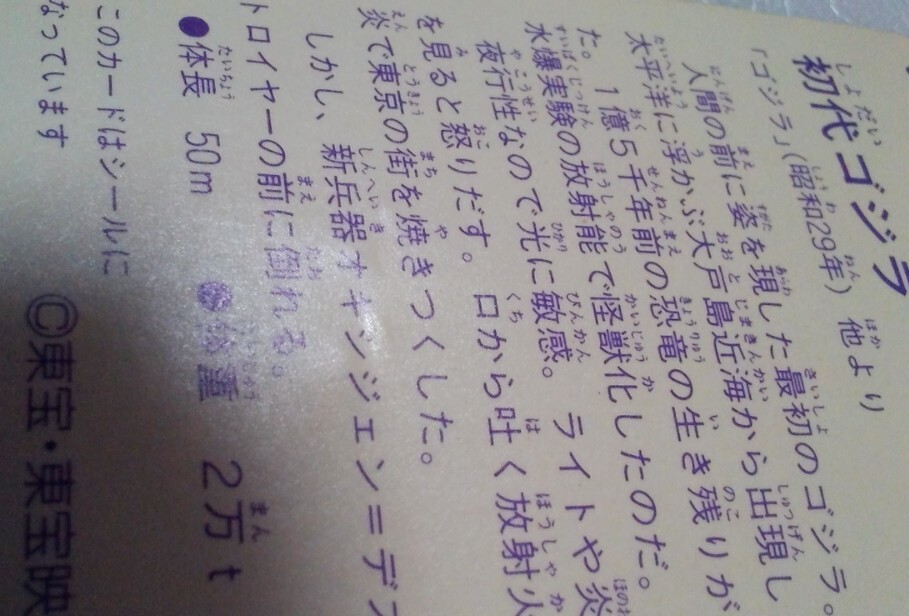 初代ゴジラ
「ゴジラ」(昭和29年) 他より
人間の前に姿を現した最初のゴジラ。
太平洋に浮かぶ大戸島近海から出現し
た。1億5千年前の恐竜の生き残りが
水爆実験の放射能で怪獣化したのだ。
夜行性なので光に敏感。ライトや炎
を見ると怒りだす。口から吐く放射火
炎で東京の街を焼きつくした。
しかし、新兵器オキシジェン=デス
トロイヤーの前に倒れる。
●体長 50m ●体重 2万t
このカードはシールに
なっています
©東宝・東宝映